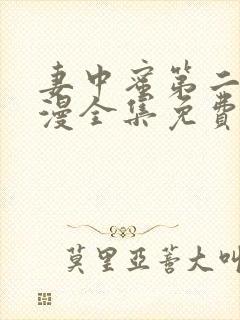 妻中蜜第二
漫全集免费
莫里亚蒂大叫